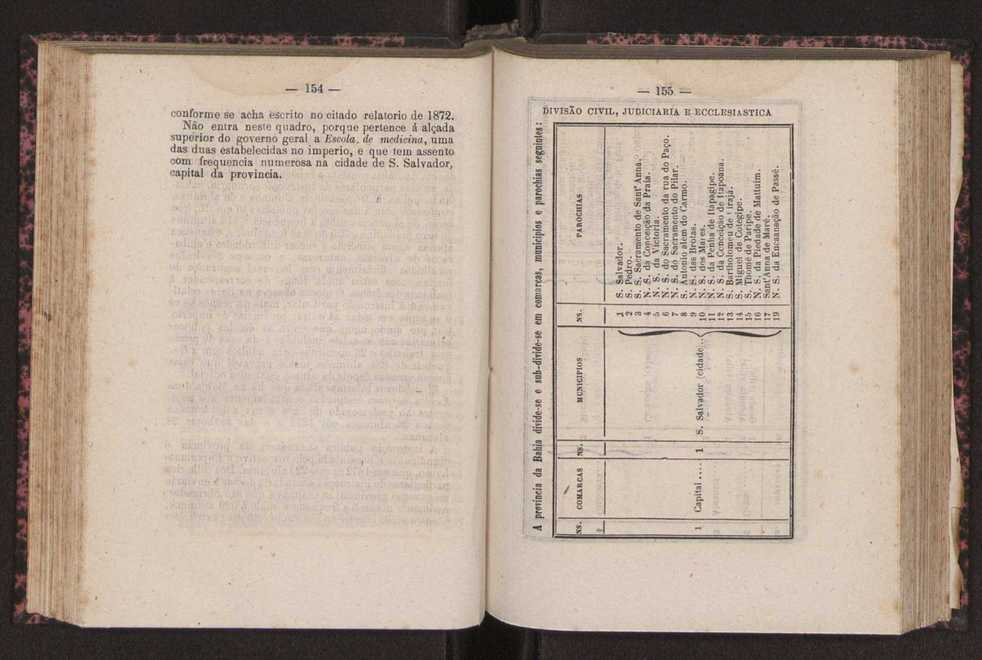 — 154 —
conforme se acha escrito no citado relatorio de 1872.
Não entra neste quadro, porque pertence á alçada
superior do governo geral a Escola de medicina, uma
das duas estabelecidas no imperio, e que tem assento
com frequencia numerosa na cidade de S. Salvador,
capital da provincia.
— 155 —
DIVISÃO CIVIL, JUDICIARIA E ECCLESIASTICA
A provincia da Bahia divide-se e sub-divide-se em comarcas, municipios e parochias seguintes:
NS. COMARCAS NS. MUNICIPIOS NS. PAROCHIAS
1 Capital .... 1 S. Salvador (cidade..
1 S. Salvador.
2 S. Pedro.
3 S. Sacramento de Sant'Anna.
4 N. S. da Conceição da Praia.
5 N. S. da Victoria.
6 N. S. do Sacramento da rua do Paço.
7 N. S. do Sacramento do Pilar.
8 S. Antonio alem do Carmo.
9 N. S. das Brotas.
10 N. S. dos Mares.
11 N. S. da Penha de Itapagipe.
12 N. S. da Conceição de Itapoana.
13 S. Bartholomeu de Pirajá.
14 S. Miguel de Cotegipe.
15 S. Thomé de Paripe.
16 N. S. da Piedade de Mattuim.
17 Sant'Anna de Maré.
19 N. S. da Encarnação de Passé.